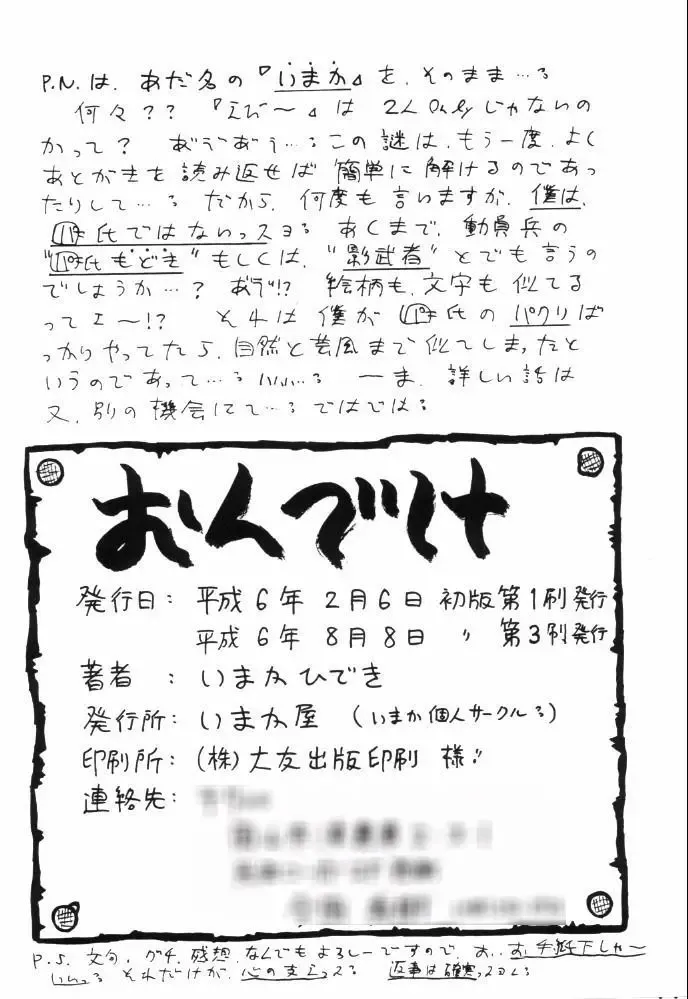 P.N.は、あだ名の『いまか』を、そのまま…る
何々??『えび〜』は2人Onlyじゃないの
かって? あ゛う゛あ゛う…る この謎は、もう一度、よく
あとがきを読み返せば簡単に解けるのであっ
たりして…る だから、何度も言いますが、僕は、
氏ではないっスョる あくまで、動員兵の
氏もどき"もしくは、"影武者"とでも言うの
でしょうか…? あ゛う゛!? 絵柄も、文字も似てる
ってェ〜!? それは僕が 氏のパクリば
っかりやってたら、自然と芸風まで似てしまったと
いうのであって…る いいい…る ーま、詳しい話は
又、別の機会にて…る ではではる
おんでけ
発行日: 平成6年 2月6日 初版第1刷発行
平成6年 8月8日 〃 第3刷発行
著者 : いまかひでき
発行所: いまか屋 (いまか個人サークルる)
印刷所: (株)大友出版印刷 様!!
連絡先:
P.S. 文句、グチ、感想、なんでもよろしーですので、お、お手紙下しゃ〜
いっる それだけが、心の支えっスる 返事は確実っスョる